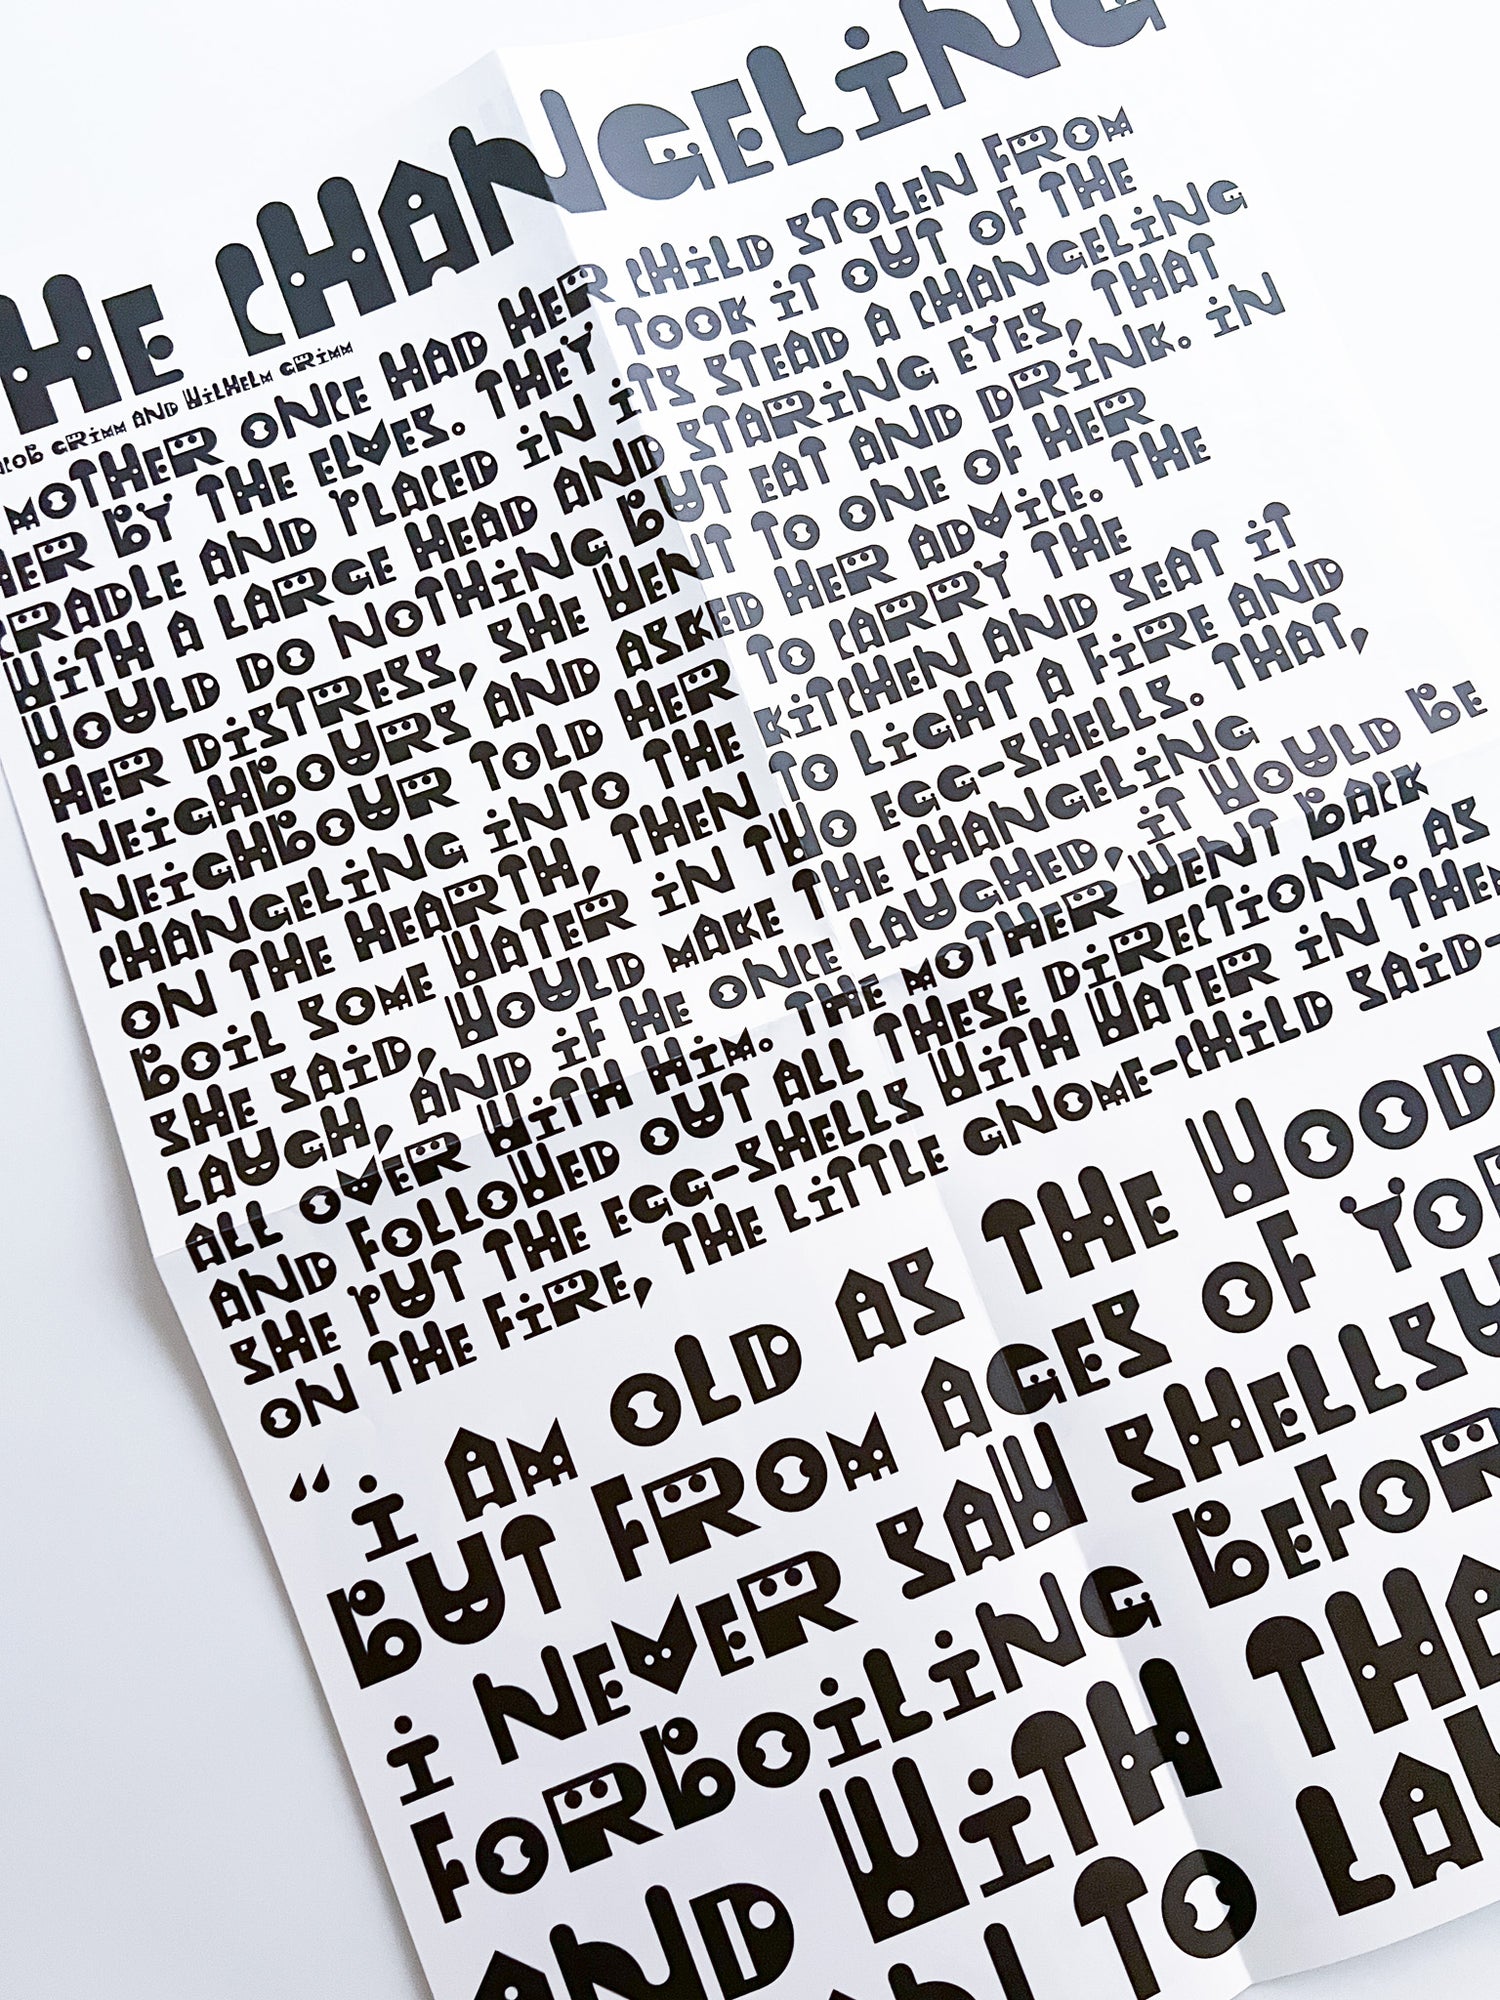 THE CHANGELING
JACOB GRIMM AND WILHELM GRIMM
MOTHER ONCE HAD HER CHILD STOLEN FROM
HER BY THE ELVES. THEY TOOK IT OUT OF THE
CRADLE AND PLACED IN ITS STEAD A CHANGELING
WITH A LARGE HEAD AND STARING EYES, THAT
WOULD DO NOTHING BUT EAT AND DRINK. IN
HER DISTRESS, SHE WENT TO ONE OF HER
NEIGHBOURS AND ASKED HER ADVICE. THE
NEIGHBOUR TOLD HER TO CARRY THE
CHANGELING INTO THE KITCHEN AND SEAT IT
ON THE HEARTH, THEN TO LIGHT A FIRE AND
BOIL SOME WATER IN TWO EGG-SHELLS. THAT,
SHE SAID, WOULD MAKE THE CHANGELING
LAUGH, AND IF HE ONCE LAUGHED, IT WOULD BE
ALL OVER WITH HIM. THE MOTHER WENT BACK
AND FOLLOWED OUT ALL THESE DIRECTIONS. AS
SHE PUT THE EGG-SHELLS WITH WATER IN THEM
ON THE FIRE, THE LITTLE GNOME-CHILD SAID-
“I AM OLD AS THE WOOD
BUT FROM AGES OF YOR
I NEVER SAW SHELLSU
FORBOILING BEFOR
AND WITH THA
TO LAU